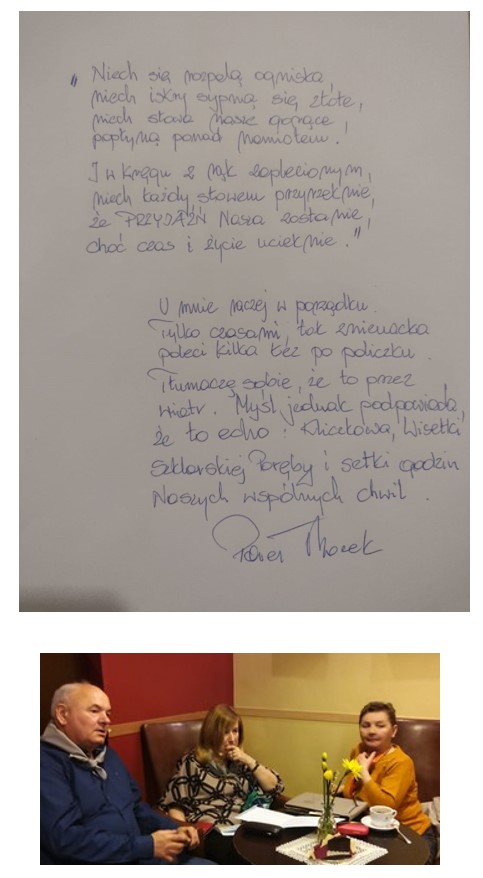 " Niech się rozpalą ogniska,
niech iskry sypną się złote,
niech słowa nasze gorące,
popłyną ponad namiotem.
I w kręgu z rąk zaplecionym,
niech każdy słowem przyrzeknie,
że PRZYJAŹŃ Nasza zostanie,
choć czas i życie ucieknie."
U mnie raczej w porządku.
Tylko czasami, tak znienacka
poleci kilka łez po policzku.
Tłumaczę sobie, że to przez
wiatr. Myśl jednak podpowiada,
że to echo: Kliczkowa, Wisełki
Szklarskiej Poręby i setki godzin
Naszych wspólnych chwil.